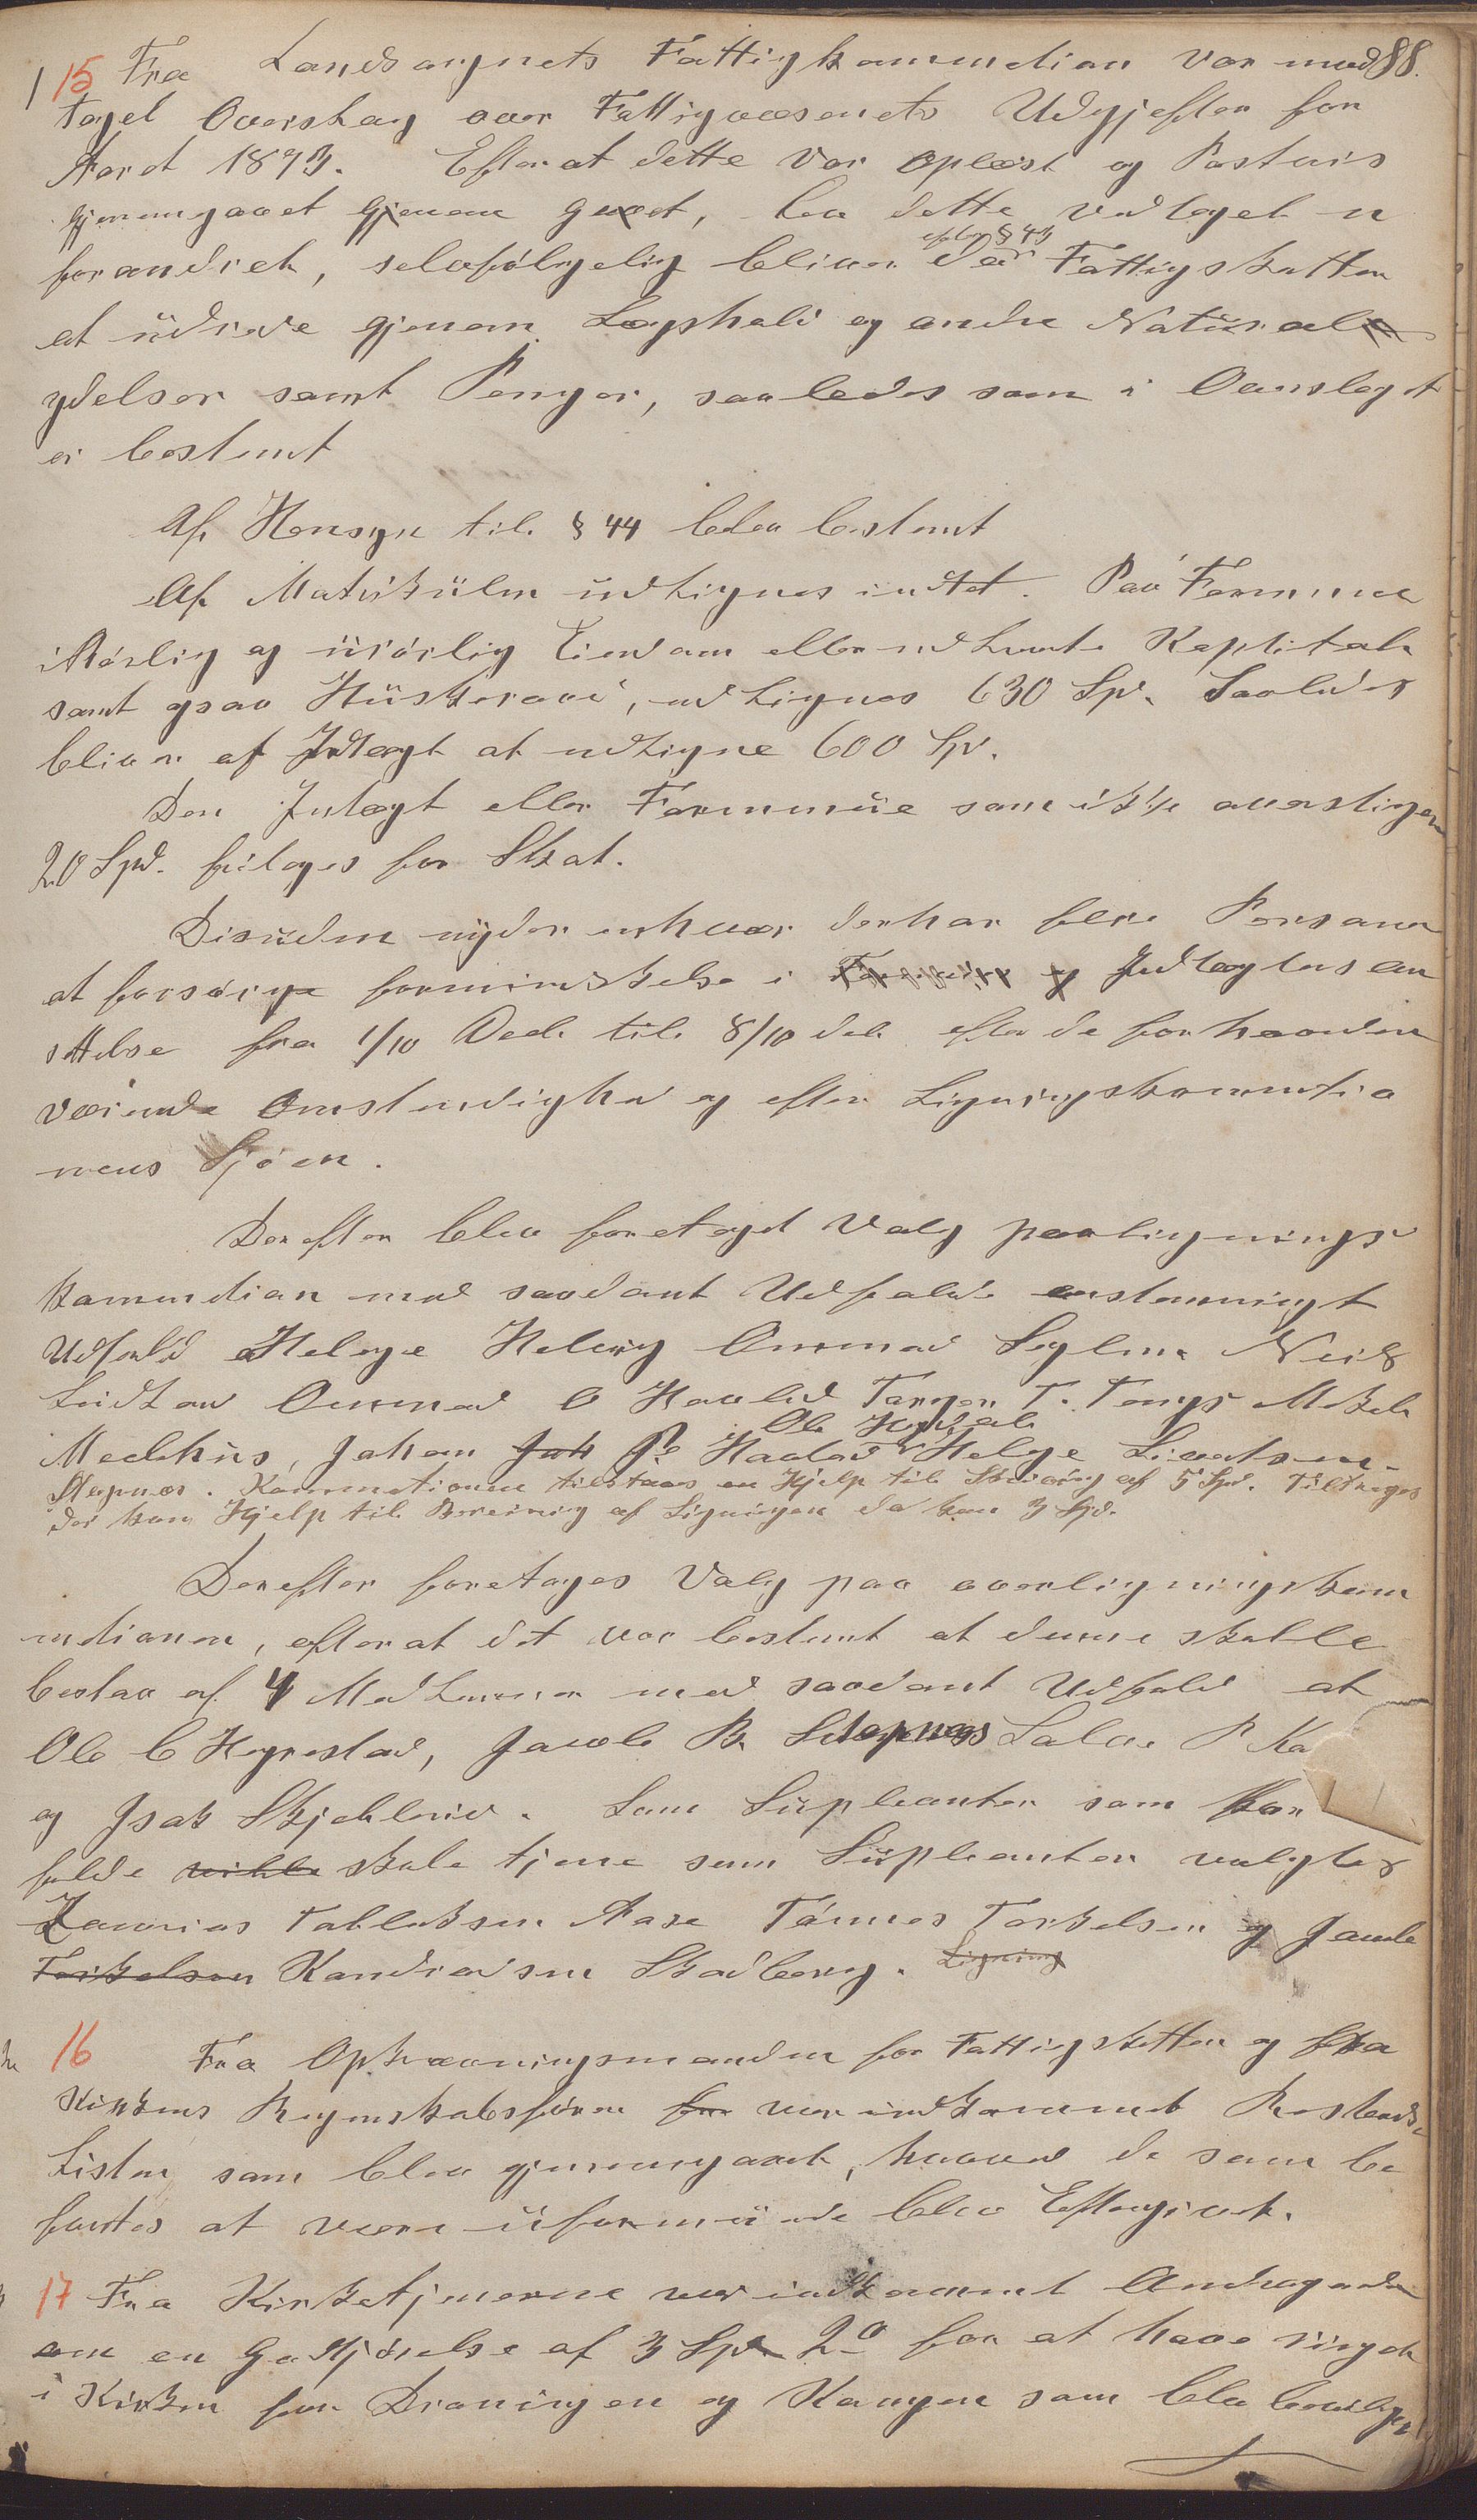 88.
15 Fra Landsognets Fattigkommiedion var mod
taget Overslag over Fattigvæsenets Udgjefter for
Aaret 1873. Efterat dette var oplæst og Postvis
gjennemgaaet gjenem gaaet, blev dette vedtaget u
forandret, selvfølgelig bliver efter § 43 der Fattigskatten
at üdrede gjenem Lægshold og andre Natüral
ydelser samt Penger, saaledes som i Overslaget
er bestemt
Af Hensyn til § 44 blev bestemt
Af Matrikülen üdlignes intet. Paa Formue
i Rørlig og ürørlig Eiendom eller udlaante Kapital
samt ogsaa Hüskeraad, udlignes 630 Spd. Saaledes
bliver af Indtægt at udligne 600 Spd.
Den Intægt eller Formüe som ikke overstiger
20 Spd. fritages for Skat.
Desüden nyder enhver der har flere Personer
at forsørge formindskelse i Indtægtens an
settelse fra 1/10 Deel til 8/10 del efter de forhaanden
værende Omstendighed og efter Ligningskommitio
nens Skjøen.
Derefter blev foretaget Valg paa lignings
kommidion med saadant Udfald enstemmigt
Udfald Helge Helvig Ommund Seglem Neils
Lindtav Ommund O Haaland Torger T. Tengs Mikel
Mechhüs, Johan Jak P. Haaland Ole Hovdal Helge Sivertsen
Stapnæs. Kommitionen tilstaaes en Hjelp til Skrivning af 5 Spd. Tiltreges
der kun Hjelp til Reneivnig af Ligningen da kun 3 Spd.
Derefter foretages Valg paa overligningskom
mitionen, efterat det var bestemt at denne skulle
bestaa af 4 Medlemmer med saadant Udfald at
Ole C Hegrestad, Jacob B. Stapnæs Salve P. Ka
og Isak Skjebbrid. Som Süpleanter som for
falde vilde skule tjene som Süpleanter valgtes
Zacarias Tollaksen Aase Tønnes Torkelsen og Jacob
Torkelsen Kondradsen Skadberg. Ligning
16 Fra Opkrævningsmanden for Fattigskatten og fra
Kirkens Regenskabsfører for var indkommet Restands
Listen, som blev gjennemgaaet, hvorved de som be
fantes at være üformüende blev Eftergivet.
17 Fra Kirketjenerne var indkommet Andragende
om en Godtgjørelse af 3 Spd 2 for at have ringet
i Kirken for Droningen og Kongen som blev bevilget